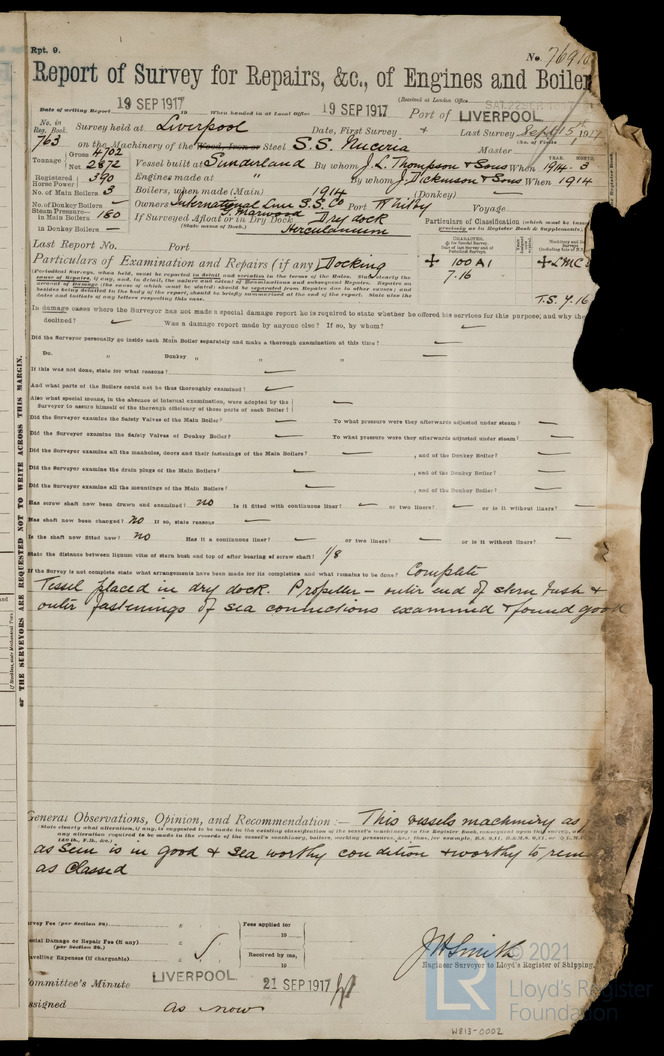 Rpt. 9.
No. 769
Report of Survey for Repairs, &c., of Engines and Boiler
(Received at London Office
Date of writing Report 19 SEP 1917 19 When handed in at Local Office 19 SEP 1917 Port of LIVERPOOL
No. in Reg. Book. Survey held at Liverpool Date, First Survey + Last Survey Sept 15th 1917
763 on the Machinery of the Wood, Iron or Steel S.S. Nuceria Master
(No. of Visits
Tonnage Gross 4702 Net 2872 Vessel built at Sunderland By whom J. L. Thompson & Sons When 1914 - 3
YEAR. MONTH.
Registered Horse Power 390 Engines made at " By whom J. Dickinson & Sons When 1914
No. of Main Boilers 3 Boilers, when made (Main) 1914 (Donkey) —
No. of Donkey Boilers — Owners International Line S.S. Co Port Whitby Voyage
T. Marwood
Steam Pressure— in Main Boilers 180 If Surveyed Afloat or in Dry Dock Dry dock
(State name of Dock.) Herculaneum
in Donkey Boilers —
Particulars of Classification (which must be
precisely as in Register Book & Supplements).
Last Report No. Port
CHARACTER.
Particulars of Examination and Repairs (if any) Docking
+ 100 A1
7.16
+ LMC
T.S. 7.16
(Periodical Surveys, when held, must be reported in detail and
In damage cases where the Surveyor has not made a special damage report he is required to state whether he offered his services for this purpose, and why they
declined? — Was a damage report made by anyone else? If so, by whom? —
Did the Surveyor personally go inside each Main Boiler separately and make a thorough examination at this time? —
Do. " Donkey " " " —
If this was not done, state for what reasons? —
And what parts of the Boilers could not be thoroughly examined? —
Also what special means, in the absence of internal examination, were adopted by the
Surveyor to assure himself of the thorough efficiency of those parts of each Boiler? —
Did the Surveyor examine the Safety Valves of the Main Boiler? — To what pressure were they afterwards adjusted under steam? —
Did the Surveyor examine the Safety Valves of Donkey Boiler? — To what pressure were they afterwards adjusted under steam? —
Did the Surveyor examine all the manholes, doors and their fastenings of the Main Boilers? — , and of the Donkey Boiler? —
Did the Surveyor examine the drain plugs of the Main Boilers? — , and of the Donkey Boiler? —
Did the Surveyor examine all the mountings of the Main Boilers? — , and of the Donkey Boiler? —
Has screw shaft now been drawn and examined? no Is it fitted with continuous liner? — or two liners? — or is it without liners? —
Has shaft now been changed? no If so, state reasons —
Is the shaft now fitted new? no Has it a continuous liner? — or two liners? — or is it without liners? —
State the distance between lignum vitæ of stern bush and top of after bearing of screw shaft? 1/8
If the Survey is not complete state what arrangements have been made for its completion and what remains to be done? Complete
Vessel placed in dry dock. Propeller - outer end of stern bush &
outer fastenings of sea connections examined & found good
General Observations, Opinion, and Recommendation :— This vessels machinery as
as seen is in good & sea worthy condition & worthy to rem
as classed
Survey Fee (per Section 28) £
Special Damage or Repair Fee (if any) £
(per Section 28.)
Travelling Expenses (if chargeable) £
Fees applied for
19
Received by me,
19
J W Smith
Engineer Surveyor to Lloyd's Register of Shipping.
LIVERPOOL
Committee's Minute 21 SEP 1917
Assigned as now
or THE SURVEYORS ARE REQUESTED NOT TO WRITE ACROSS THIS MARGIN.
© 2021
LR
Lloyd's Register
Foundation
W813-0002